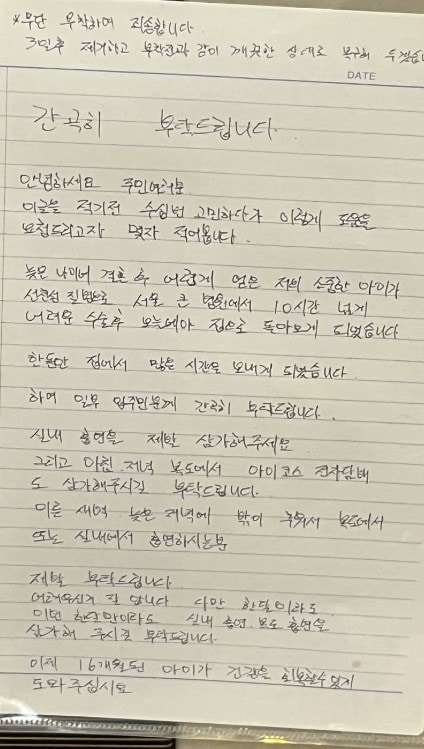 *무단 부착하여 죄송합니다.
3일후 제거하고 부착전과 같이 깨끗한 상태로 복구해 두겠습
DATE
간곡히 부탁드립니다.
안녕하세요 주민여러분
이글을 적기전 수십번 고민하다가 이렇게 도움을
요청드리고자 몇자 적어봅니다.
늦은 나이에 결혼 후 어렵게 얻은 저의 소중한 아이가
선천성 질병으로 서울 큰 병원에서 10시간 넘게
어려운 수술후 오늘에야 집으로 돌아오게 되었습니다
한동안 집에서 많은 시간을 보내게 되었습니다
하여 일부 입주민분께 간곡히 부탁드립니다.
실내 흡연을 제발 삼가해주세요
그리고 아침.저녁 복도에서 아이코스 전자담배
도 삼가해주시길 부탁드립니다.
이른 새벽 늦은 저녁에 밖이 추워서 복도에서
또는 실내에서 흡연하시는분
제발 부탁드립니다
어려우신거 잘 압니다 다만 한달이라도
이번 한주만이라도 실내 흡연 복도 흡연을
삼가해 주시길 부탁드립니다.
이제 16개월된 아이가 건강을 회복할수있게
도와주십시요